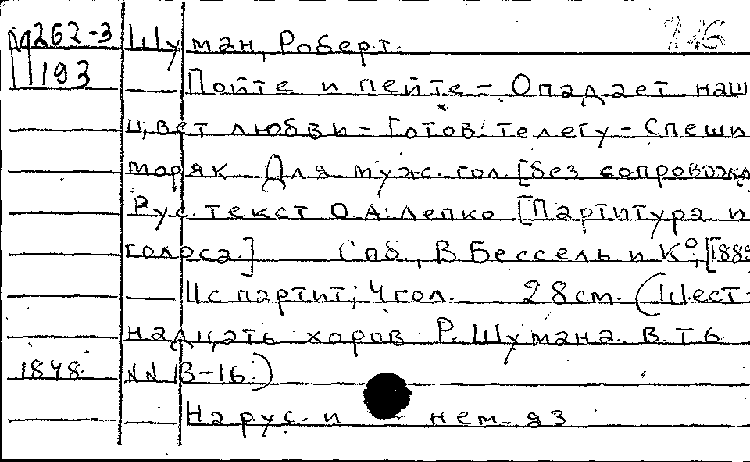 М262-3 Шуман, Роберт.
193 Пойте и пейте = Опадает наш
цвет любви = Готовь телегу = Спеши
моряк Для муж. гол. [без сопровожд
Рус. текст О.А. Лепко [Партитура и
голоса.] Спб, В. Бессель и К⁰, [188
11с партит; 4 гол. 28см. (Шест-
надцать хоров Р. Шумана. В. Т6
1848 NN 13-16.)
На рус. и нем яз